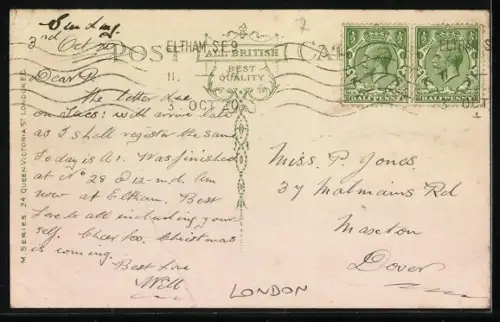 Sunday
3rd Oct 20
POST CARD
ALL BRITISH
BEST
QUALITY
ELTHAM S.E.9
11.
3. OCT 20
ELTHAM S
3. OCT
HALFPENNY
HALFPENNY
M. SERIES. 24 QUEEN VICTORIA ST LONDON E.C.
Dear P.
The letter due
on Tues: will arrive late
as I shall register the same
Today is A1. Was finished
at No 28 @ 12-md. Am
now at Eltham. Best
love to all including your
self. Cheer too. Christmas
is coming.
Best Love
Will
Miss. P. Jones.
37 Malmains Rd
Maxton
Dover
LONDON